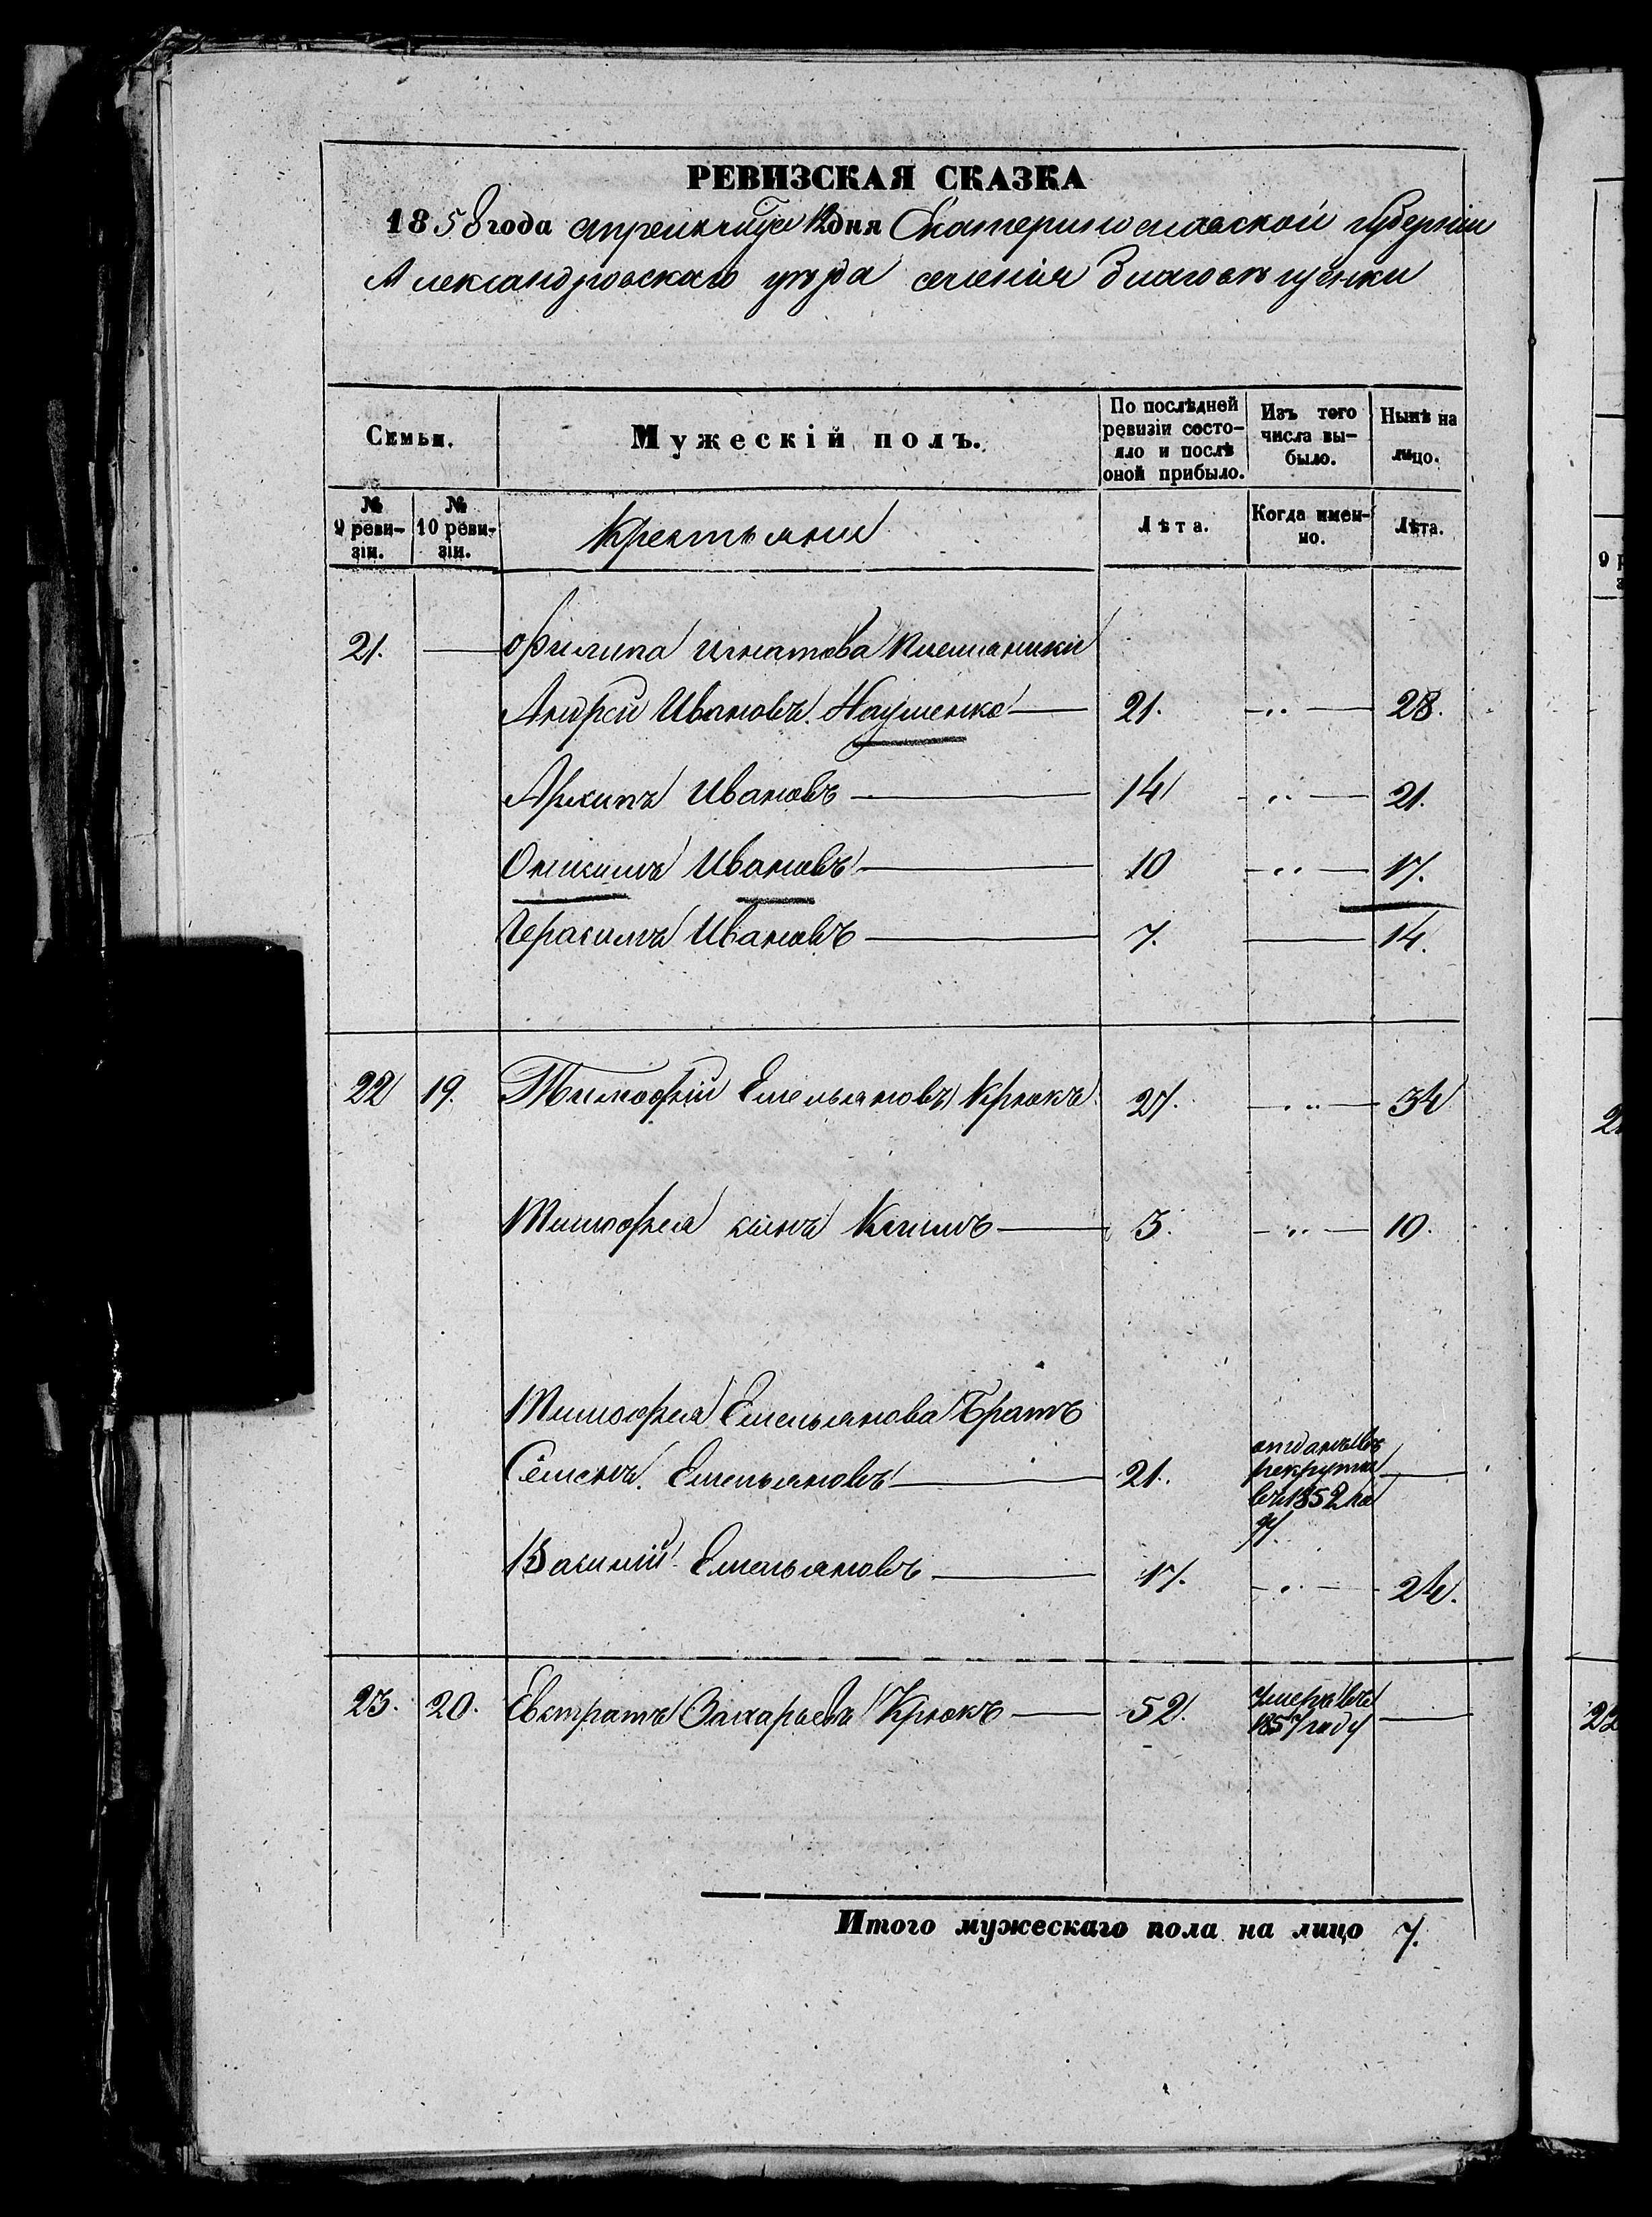 РЕВИЗСКАЯ СКАЗКА
1858 года апреля месяца 12 дня Екатеринославской губернiи
Александровскаго уѣзда селенiя Благовѣщенки
Семьи.
Мужескiй полъ.
По послѣдней ревизiи состо-
яло и послѣ
оной прибыло.
Изъ того
числа вы-
было.
Нынѣ на
лицо.
№
9 реви-
зiи.
№
10 реви-
зiи.
Крестьяни
Лѣта.
Когда имен-
но.
Лѣта.
21. — Филипа Игнатова племяники
Андрей Ивановъ Науменко — 21. — „ — 28.
Архипъ Ивановъ — 14 — „ — 21.
Онисимъ Ивановъ — 10 — „ — 17.
Герасимъ Ивановъ — 7. — 14.
22 19. Тимофѣй Емельяновъ Крюкъ 27. — „ — 34
Тимофея сынъ Климъ — 3. — „ — 10.
Тимофея Емельянова Братъ
Семенъ Емельяновъ — 21. отданъ въ
рекруты
въ 1852 го
ду. —
Василiй Емельяновъ — 17. — „ — 24.
23. 20. Евстратъ Захарьевъ Крюкъ — 52. умеръ въ
1857 году —
Итого мужескаго пола на лицо 7.
9